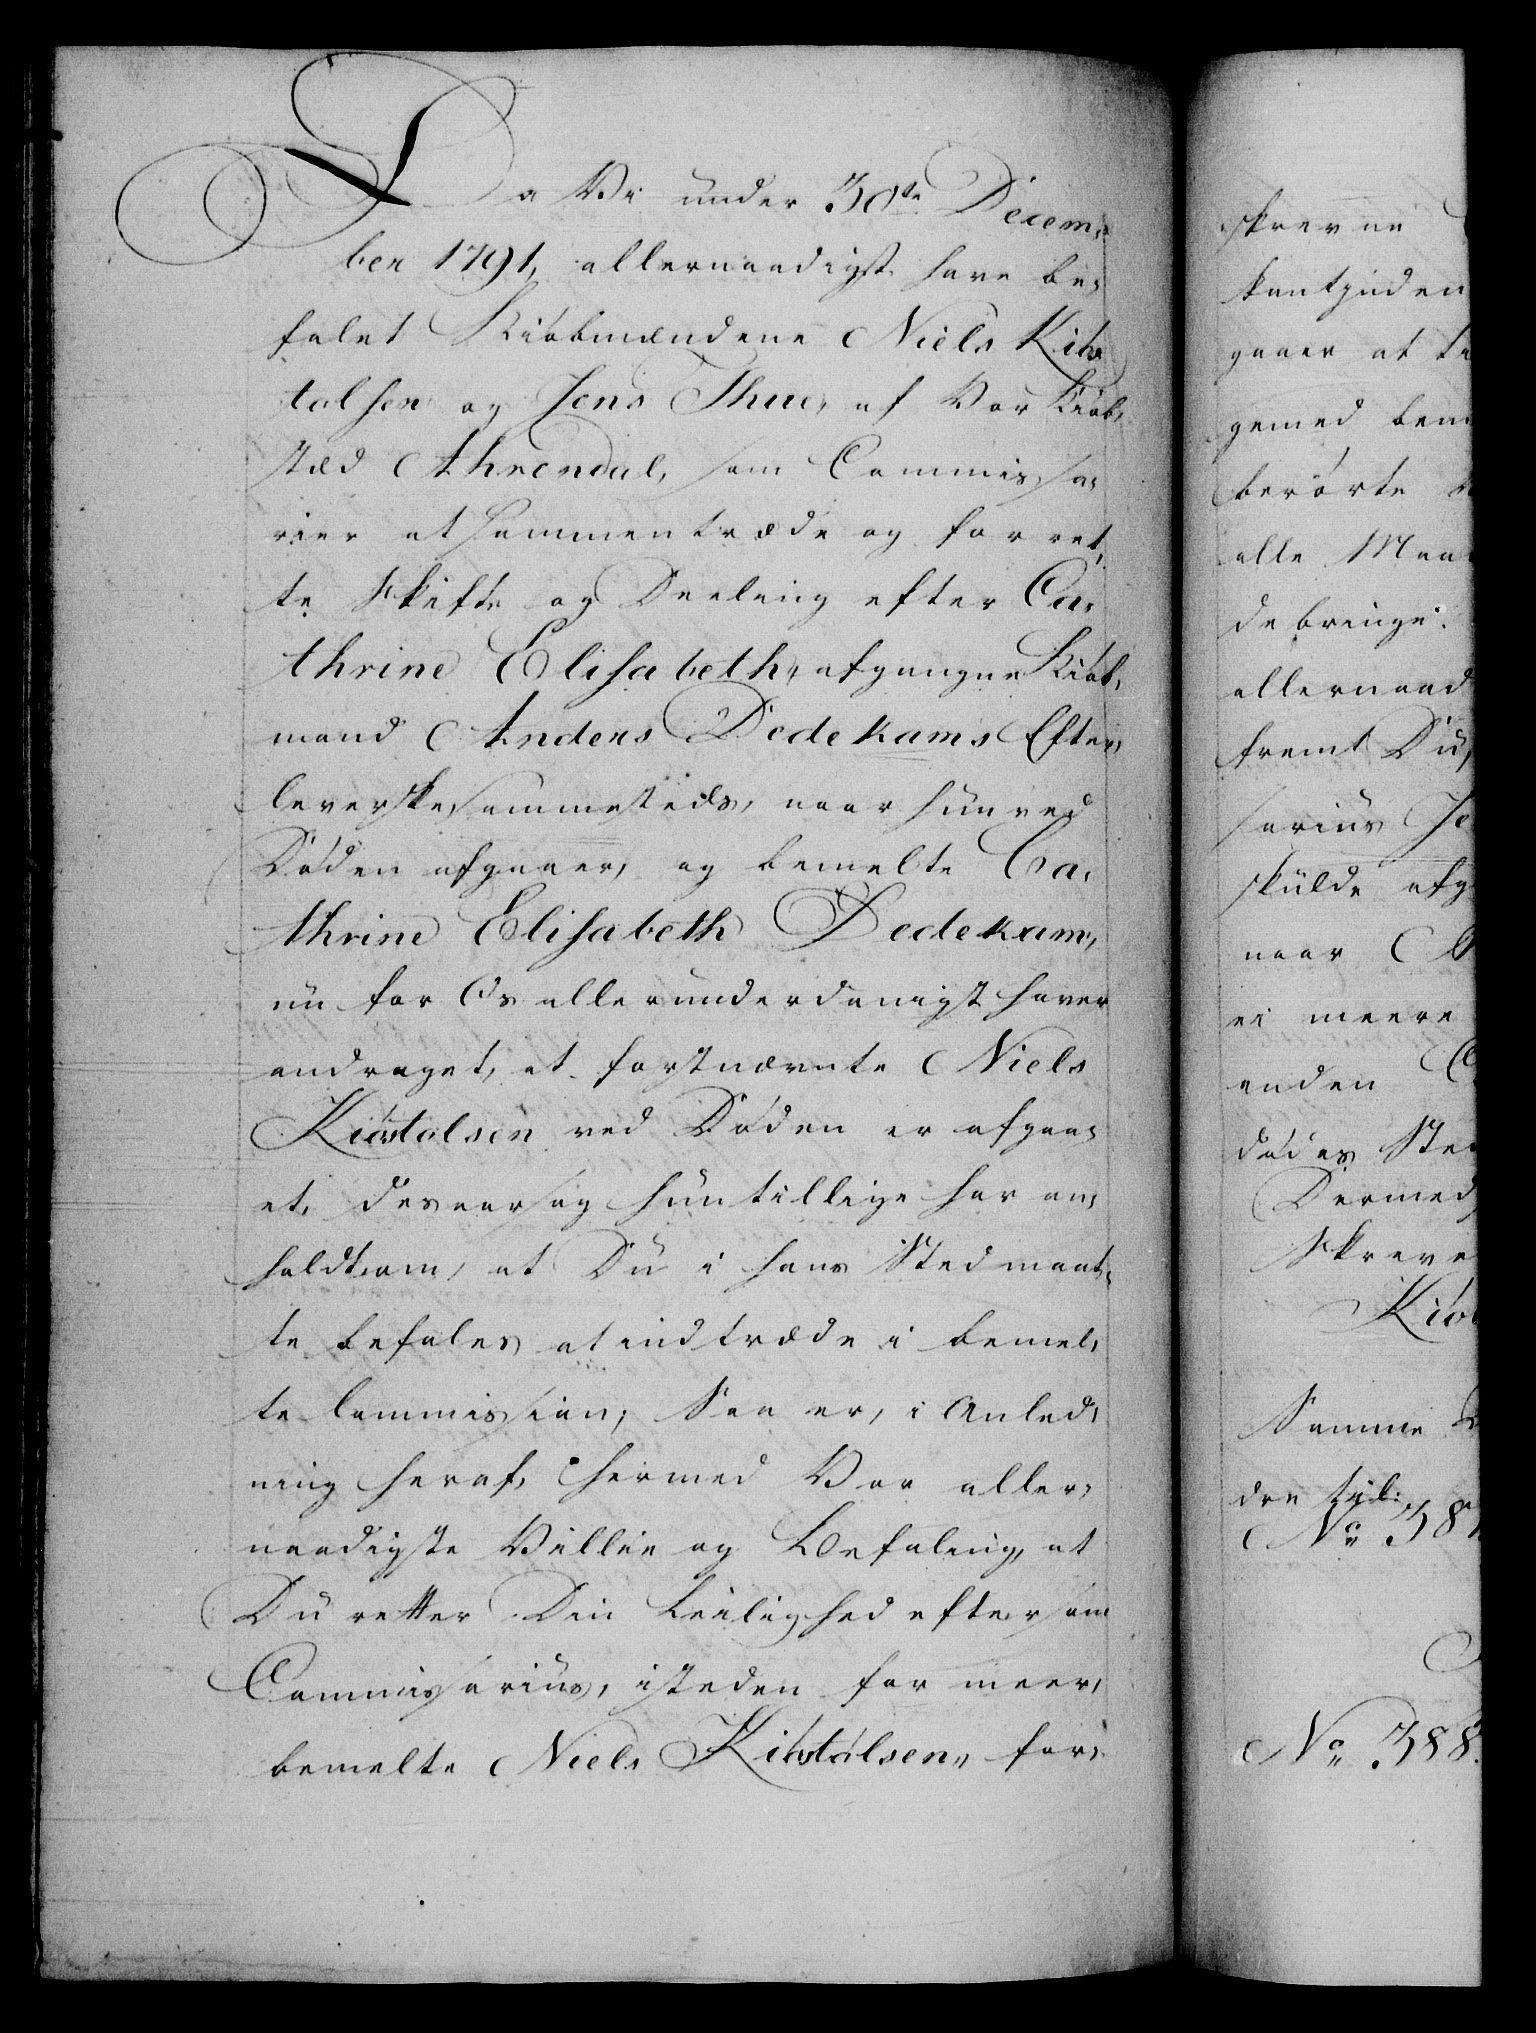 Da Vi under 30te Decem,
ber 1791, allernaadigst have be,
falet Kiöbmændene Niels Kiös
tolsen og Jens Thue, af Vor Kiöb,
stæd Ahrendal, som Commissa,
rier at sammentræde og forret,
te Skifte og Deeling efter Ca,
thrine Elisabeth, afgangne Kiöb,
mand Anders Dedekams Efter,
leverske sammesteds, naar hun ved
Döden afgaaer, og bemelte Ca,
thrine Elisabeth Dedekam,
nu for Os allerunderdanigst haver
andraget, at forstnævnte Niels
Kiöstolsen ved Döden er afgaa,
et, desaarsag hun tillige har an,
holdt om, at Du i hans Sted maat,
te befales at indtræde i bemel,
te Commission; Saa er, i Anled,
ning heraf, hermed Vor aller,
naadigste Villie og Befaling, at
Du retter Din Leilighed efter som
Commissarius, isteden for meer,
bemelte Niels Kiöstolsen, for,
skrevne
gaaer at
gemed
berörte
alle
de bringe.
allernaad
fremt Du,
sarius
skulde afg
naar
ei meere
anden
dödes
Dermed
Skreve
Kiöb
Samme
No 387
No 388.